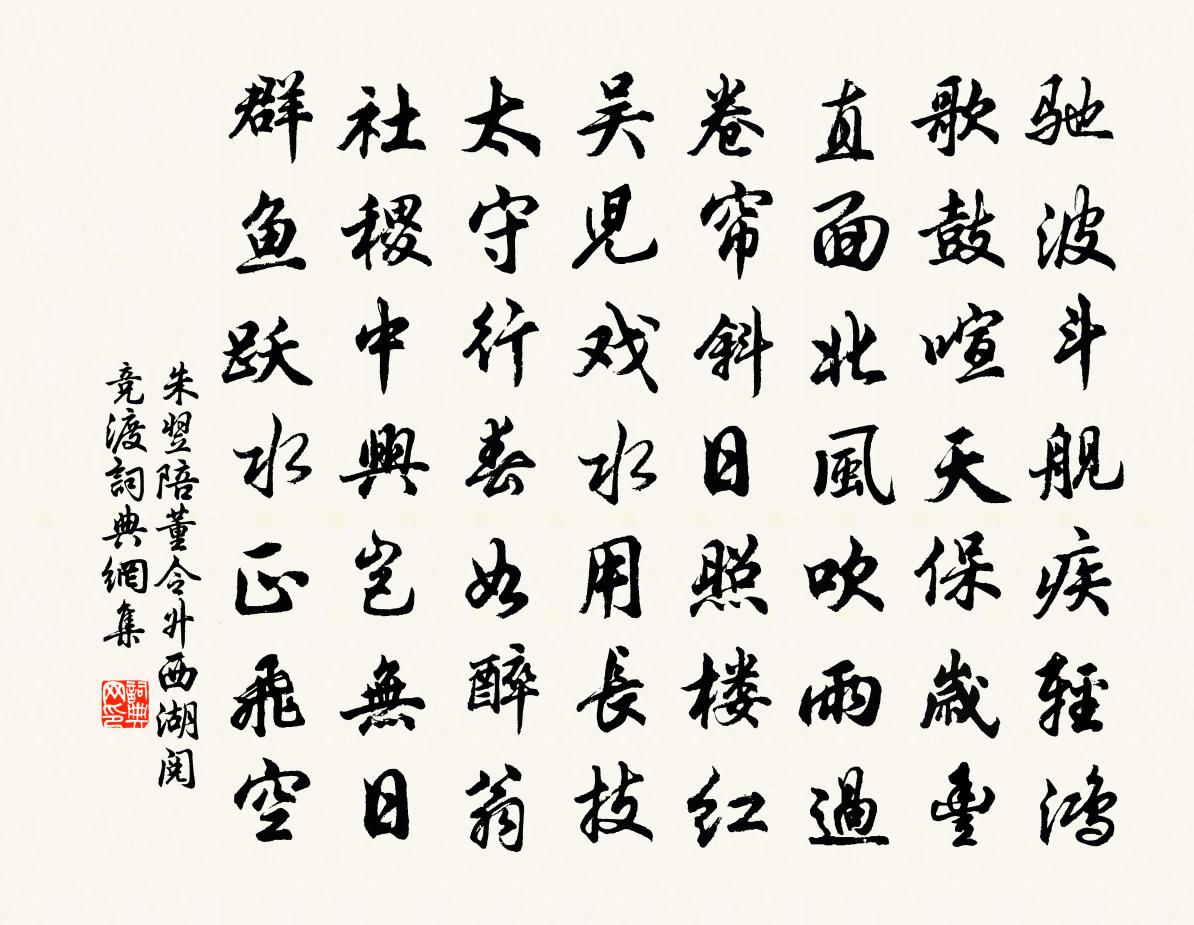 驰波斗舰疾轻鸿
歌鼓喧天保岁豊
直面北風吹雨過
卷帘斜日照楼红
吴児戏水用长技
太守行春如醉翁
社稷中興岂無日
群鱼跃水正飛空
朱翌陪董令升西湖阅
竞渡詞典網集
詞典
网印